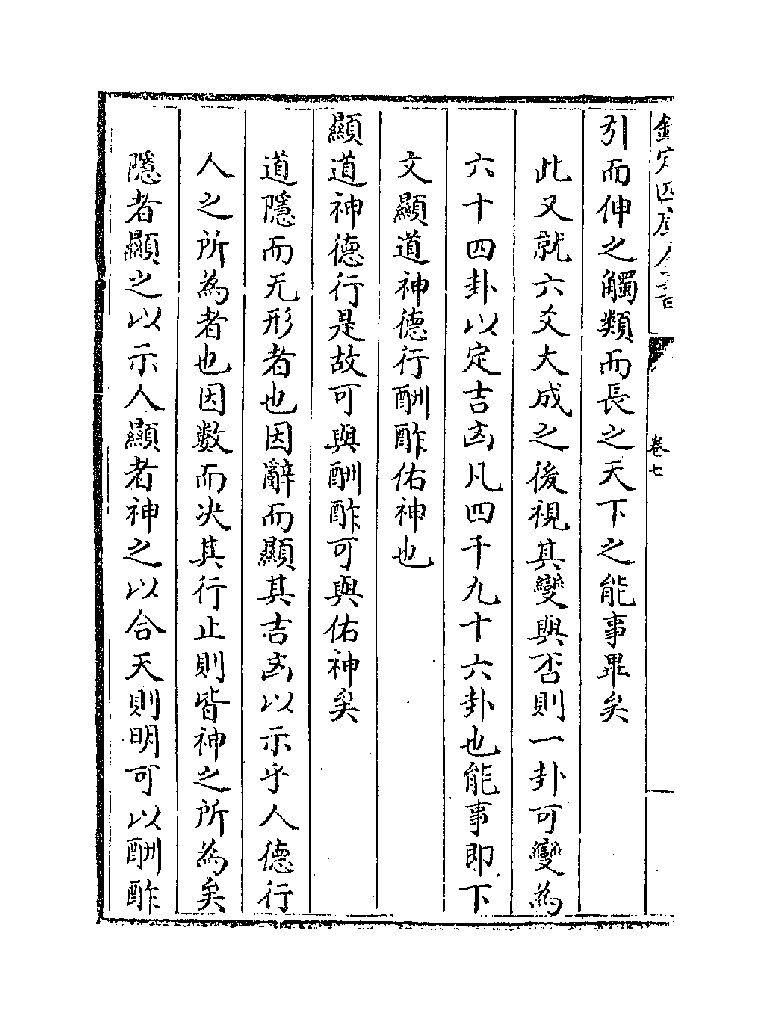 欽定四庫全書
卷七
引而伸之觸類而長之天下之能事畢矣
此又就六爻大成之後視其變與否則一卦可變為
六十四卦以定吉凶凡四千九十六卦也能事即下
文顯道神德行酬酢佑神也
顯道神德行是故可與酬酢可與佑神矣
道隱而无形者也因辭而顯其吉凶以示乎人德行
人之所為者也因數而决其行止則皆神之所為矣
隱者顯之以示人顯者神之以合天則明可以酬酢